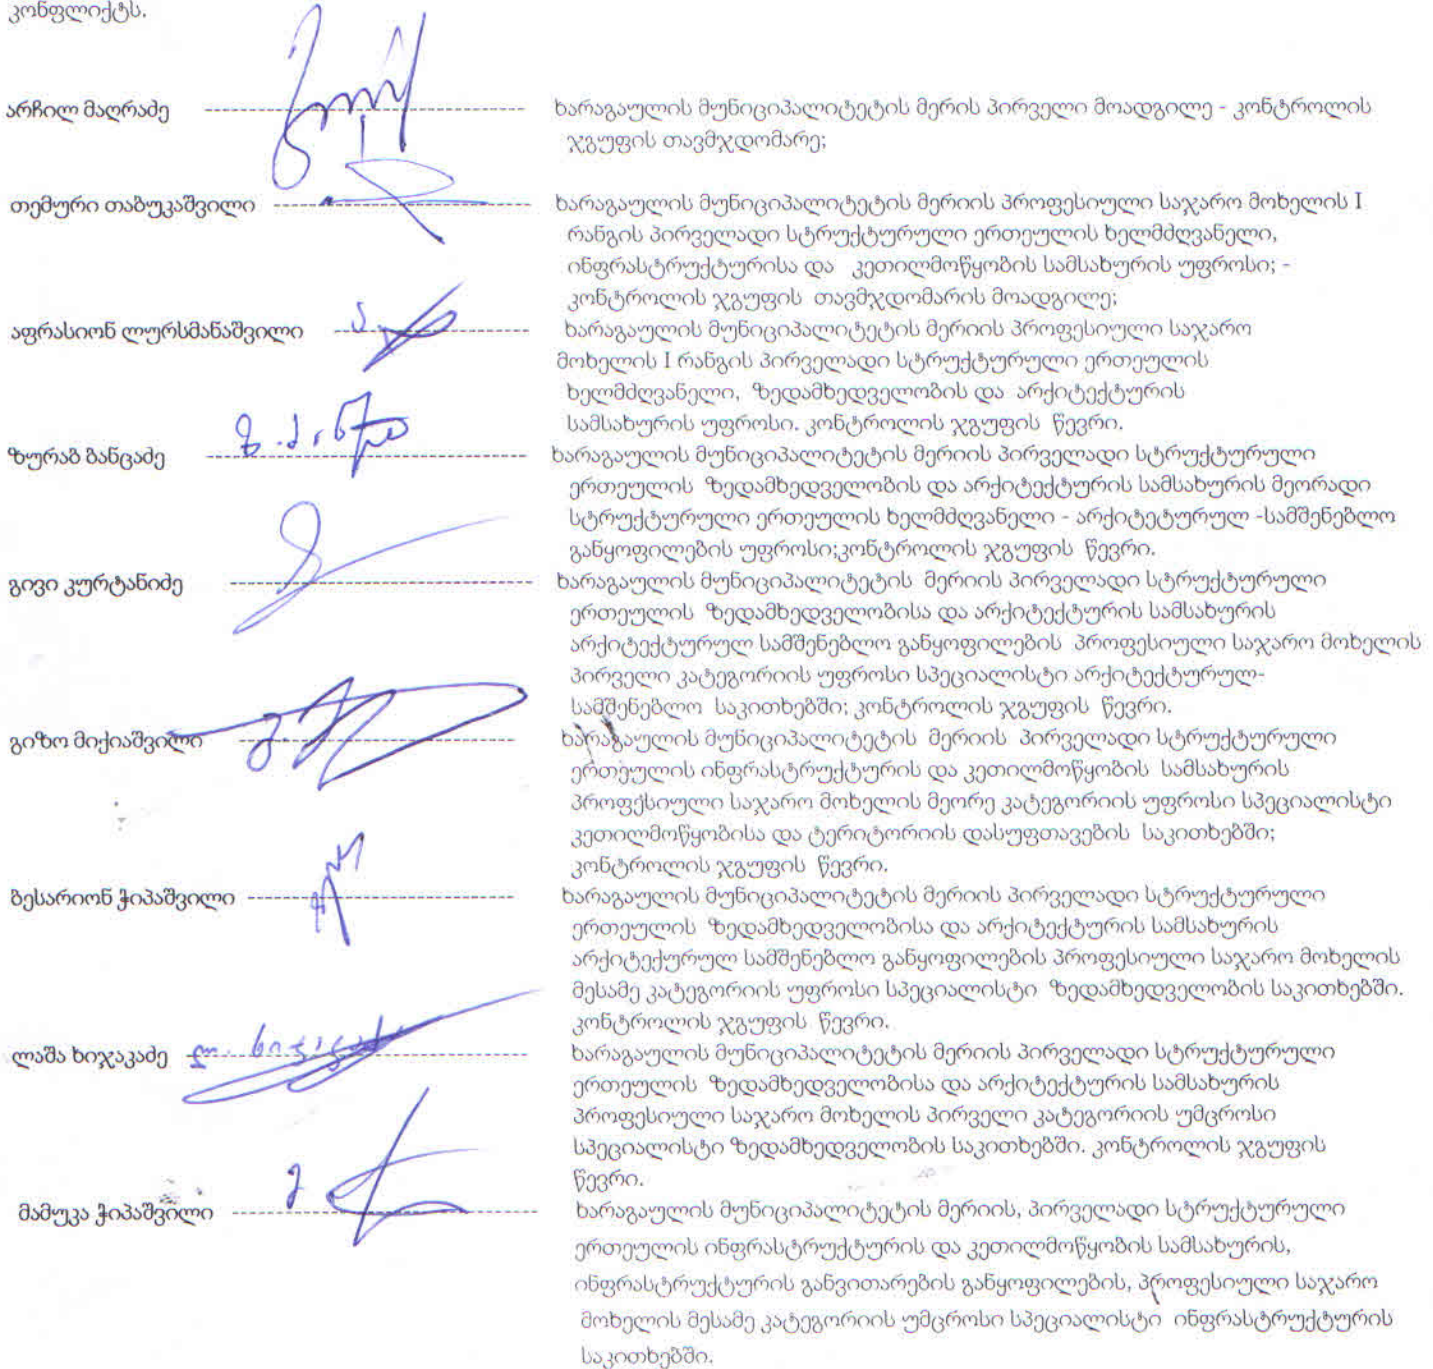 კონფლიქტს.
არჩილ მაღრაძე ---------- ხარაგაულის მუნიციპალიტეტის მერის პირველი მოადგილე - კონტროლის
ჯგუფის თავმჯდომარე;
თემური თაბუკაშვილი ---------- ხარაგაულის მუნიციპალიტეტის მერიის პროფესიული საჯარო მოხელის I
რანგის პირველადი სტრუქტურული ერთეულის ხელმძღვანელი,
ინფრასტრუქტურისა და კეთილმოწყობის სამსახურის უფროსი; -
კონტროლის ჯგუფის თავმჯდომარის მოადგილე;
აფრასიონ ლურსმანაშვილი ---------- ხარაგაულის მუნიციპალიტეტის მერიის პროფესიული საჯარო
მოხელის I რანგის პირველადი სტრუქტურული ერთეულის
ხელმძღვანელი, ზედამხედველობის და არქიტექტურის
სამსახურის უფროსი. კონტროლის ჯგუფის წევრი.
ზურაბ ბანცაძე ---------- ხარაგაულის მუნიციპალიტეტის მერიის პირველადი სტრუქტურული
ერთეულის ზედამხედველობის და არქიტექტურის სამსახურის მეორადი
სტრუქტურული ერთეულის ხელმძღვანელი - არქიტეტურულ -სამშენებლო
განყოფილების უფროსი;კონტროლის ჯგუფის წევრი.
გივი კურტანიძე ---------- ხარაგაულის მუნიციპალიტეტის მერიის პირველადი სტრუქტურული
ერთეულის ზედამხედველობისა და არქიტექტურის სამსახურის
არქიტექტურულ სამშენებლო განყოფილების პროფესიული საჯარო მოხელის
პირველი კატეგორიის უფროსი სპეციალისტი არქიტექტურულ-
სამშენებლო საკითხებში; კონტროლის ჯგუფის წევრი.
გიზო მიქიაშვილი ---------- ხარაგაულის მუნიციპალიტეტის მერიის პირველადი სტრუქტურული
ერთეულის ინფრასტრუქტურის და კეთილმოწყობის სამსახურის
პროფესიული საჯარო მოხელის მეორე კატეგორიის უფროსი სპეციალისტი
კეთილმოწყობისა და ტერიტორიის დასუფთავების საკითხებში;
კონტროლის ჯგუფის წევრი.
ბესარიონ ჭიპაშვილი ---------- ხარაგაულის მუნიციპალიტეტის მერიის პირველადი სტრუქტურული
ერთეულის ზედამხედველობისა და არქიტექტურის სამსახურის
არქიტექურულ სამშენებლო განყოფილების პროფესიული საჯარო მოხელის
მესამე კატეგორიის უფროსი სპეციალისტი ზედამხედველობის საკითხებში.
კონტროლის ჯგუფის წევრი.
ლაშა ხიჯაკაძე ---------- ხარაგაულის მუნიციპალიტეტის მერიის პირველადი სტრუქტურული
ერთეულის ზედამხედველობისა და არქიტექტურის სამსახურის
პროფესიული საჯარო მოხელის პირველი კატეგორიის უმცროსი
სპეციალისტი ზედამხედველობის საკითხებში. კონტროლის ჯგუფის
წევრი.
მამუკა ჭიპაშვილი ---------- ხარაგაულის მუნიციპალიტეტის მერიის, პირველადი სტრუქტურული
ერთეულის ინფრასტრუქტურის და კეთილმოწყობის სამსახურის,
ინფრასტრუქტურის განვითარების განყოფილების, პროფესიული საჯარო
მოხელის მესამე კატეგორიის უმცროსი სპეციალისტი ინფრასტრუქტურის
საკითხებში.